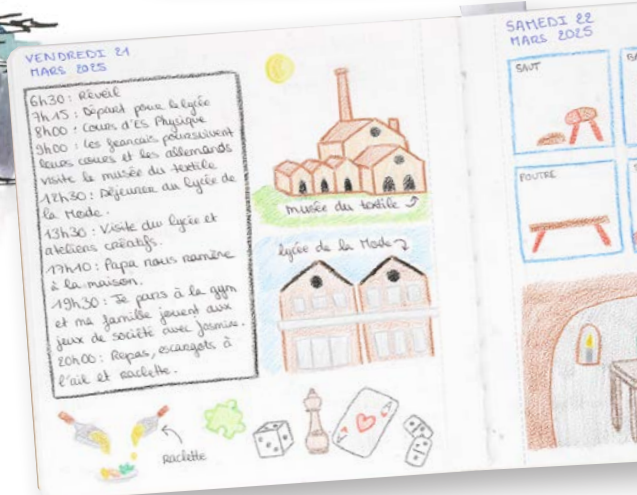 VENDREDI 21
MARS 2025
6h30 : Réveil
7h15 : Départ pour le lycée
8h00 : Cours d'ES Physique
9h00 : les français poursuivent
leurs cours et les allemands
visite le musée du textile
12h30 : Déjeuner au lycée de
la Mode.
13h30 : Visite du lycée et
ateliers créatifs.
17h10 : Papa nous ramène
à la maison.
19h30 : Je pars à la gym
et ma famille jouent aux
jeux de société avec Josmine.
20h00 : Repas, escargots à
l'ail et raclette.
musée du textile
lycée de la Mode
Raclette
SAMEDI 22
MARS 2025
SAUT
POUTRE